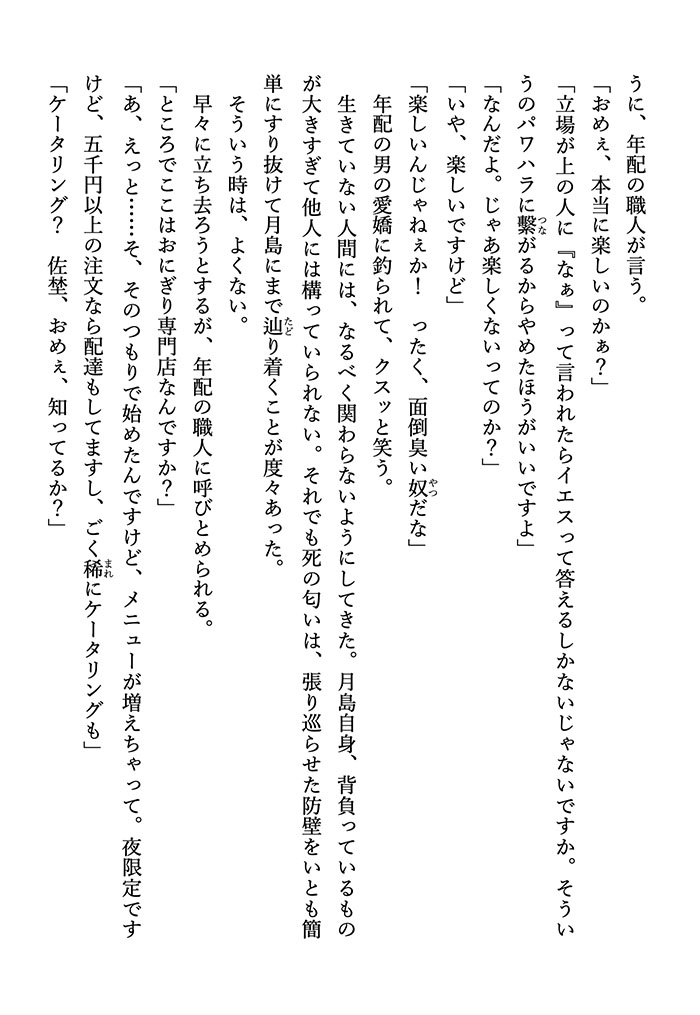 うに、年配の職人が言う。
「おめぇ、本当に楽しいのかぁ？」
「立場が上の人に『なぁ』って言われたらイエスって答えるしかないじゃないですか。そうい
うのパワハラに繋つながるからやめたほうがいいですよ」
「なんだよ。じゃあ楽しくないってのか？」
「いや、楽しいですけど」
「楽しいんじゃねぇか！　ったく、面倒臭い奴やつだな」
年配の男の愛嬌に釣られて、クスッと笑う。
生きていない人間には、なるべく関わらないようにしてきた。月島自身、背負っているもの
が大きすぎて他人には構っていられない。それでも死の匂いは、張り巡らせた防壁をいとも簡
単にすり抜けて月島にまで辿たどり着くことが度々あった。
そういう時は、よくない。
早々に立ち去ろうとするが、年配の職人に呼びとめられる。
「ところでここはおにぎり専門店なんですか？」
「あ、えっと……そ、そのつもりで始めたんですけど、メニューが増えちゃって。夜限定です
けど、五千円以上の注文なら配達もしてますし、ごく稀まれにケータリングも」
「ケータリング？　佐埜、おめぇ、知ってるか？」